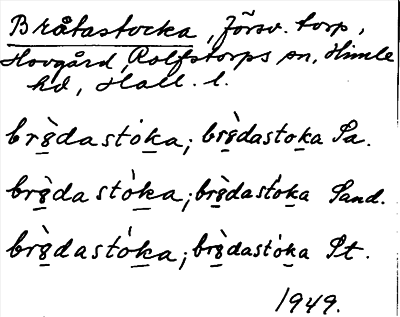 Bråtastocka, försv. torp,
Hovgård, Rolfstorps sn, Himle
hd, Hall. l.
brꝏ̀dastóka; brꝏ̀dastoka Pa.
brꝏ̀da stóka; brꝏ̀dastóka Sand.
brꝏ̀dastóka; brꝏ̀dastóka St.
1949.